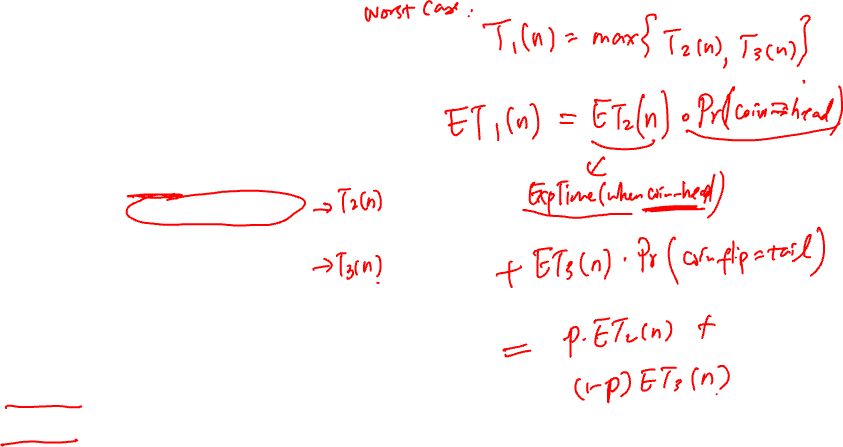 Worst Case:
T₁(n) = max{ T₂(n), T₃(n)}
ET₁(n) = ET₂(n) · Pr(coin=head)
→ T₂(n)
ExpTime(when coin=head)
→ T₃(n)
+ ET₃(n) · Pr(coinflip=tail)
= p·ET₂(n) +
(1-p) ET₃(n)